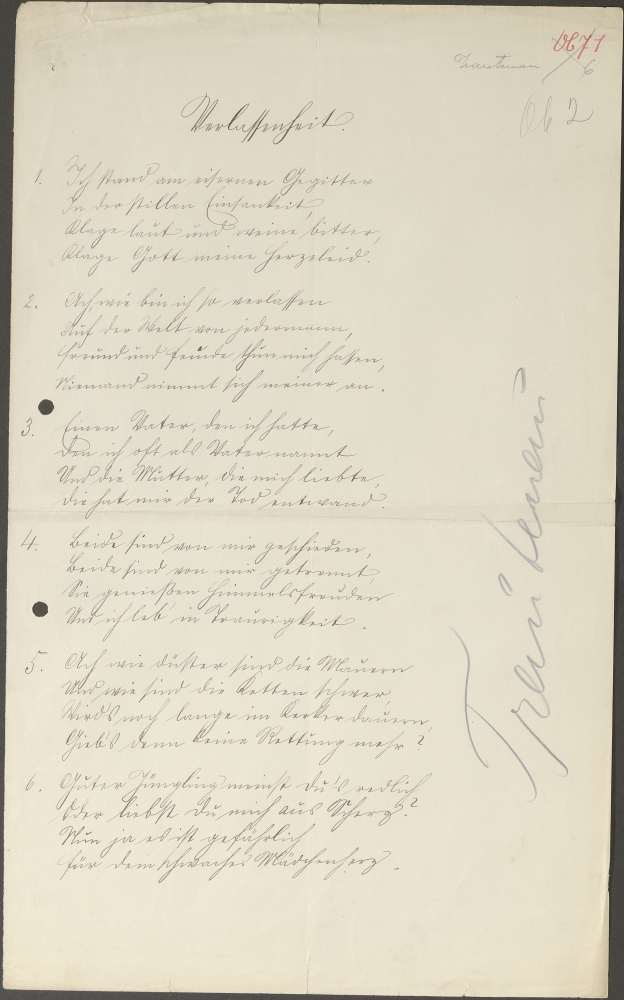 Ob 71
6
Ob 2
Verlassenheit.
1. Ich stand am eisernen Gegitter
In der stillen Einsamkeit,
Klage laut und weine bitter,
Klage Gott meine Herzeleid.
2. Ach, wie bin ich so verlassen
Auf der Welt von jedermann,
Freund und Feinde thun mich hassen,
Niemand nimmt sich meiner an.
3. Einen Vater, den ich hatte,
Den ich oft als Vater nannt
Und die Mutter, die mich liebte,
die hat mir der Tod entwand.
4. Beide sind von mir geschieden,
Beide sind von mir getrennt,
Sie genießen Himmelsfreuden
Und ich leb' in Traurigkeit.
5. Ach wie düster sind die Mauern
Und wie sind die Ketten schwer,
Wird's noch lange im Kerker dauern,
Giebt's denn keine Rettung mehr?
6. Guter Jüngling meinst Du's redlich
Oder liebst Du mich aus Scherz?
Nun ja es ist gefährlich
für dein schwaches Mädchenherz.